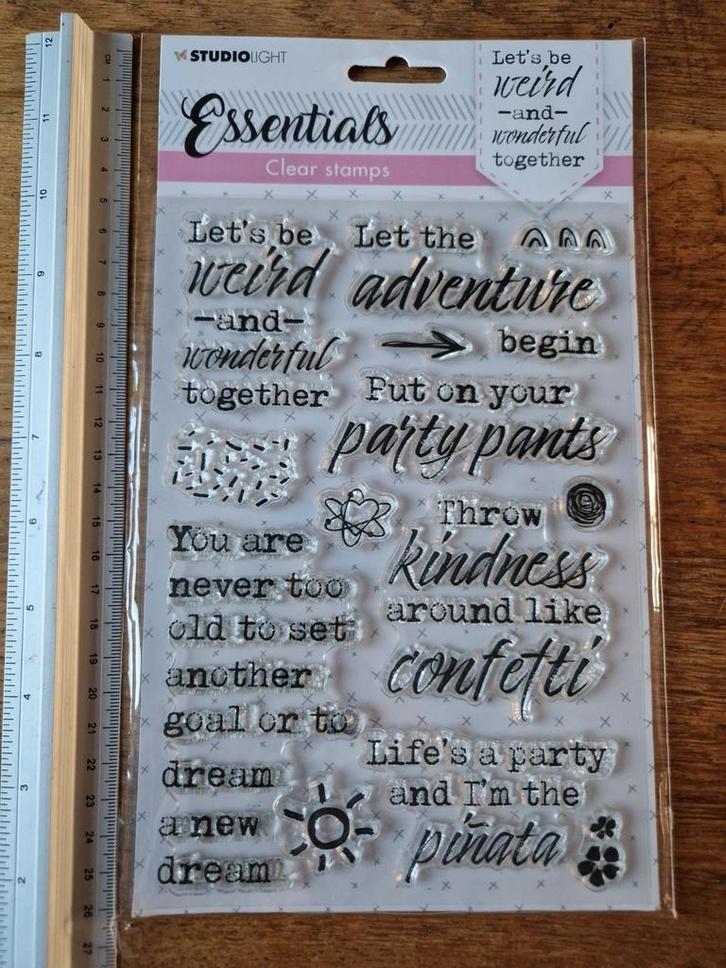 STUDIOLIGHT
Essentials
Clear stamps
Let's be
weird
-and-
wonderful
together
Let's be
weird
-and-
wonderful
together
Let the
adventure
begin
Put on your
party pants
Throw
kindness
around like
confetti
You are
never too
old to set
another
goal or to
dream
a new
dream
Life's a party
and I'm the
piñata
12
11
10
9
8
7
6
5
4
3
2
CM
1
2
3
4
5
6
7
8
9
10
11
12
13
14
15
16
17
18
19
20
21
22
23
24
25
26
27